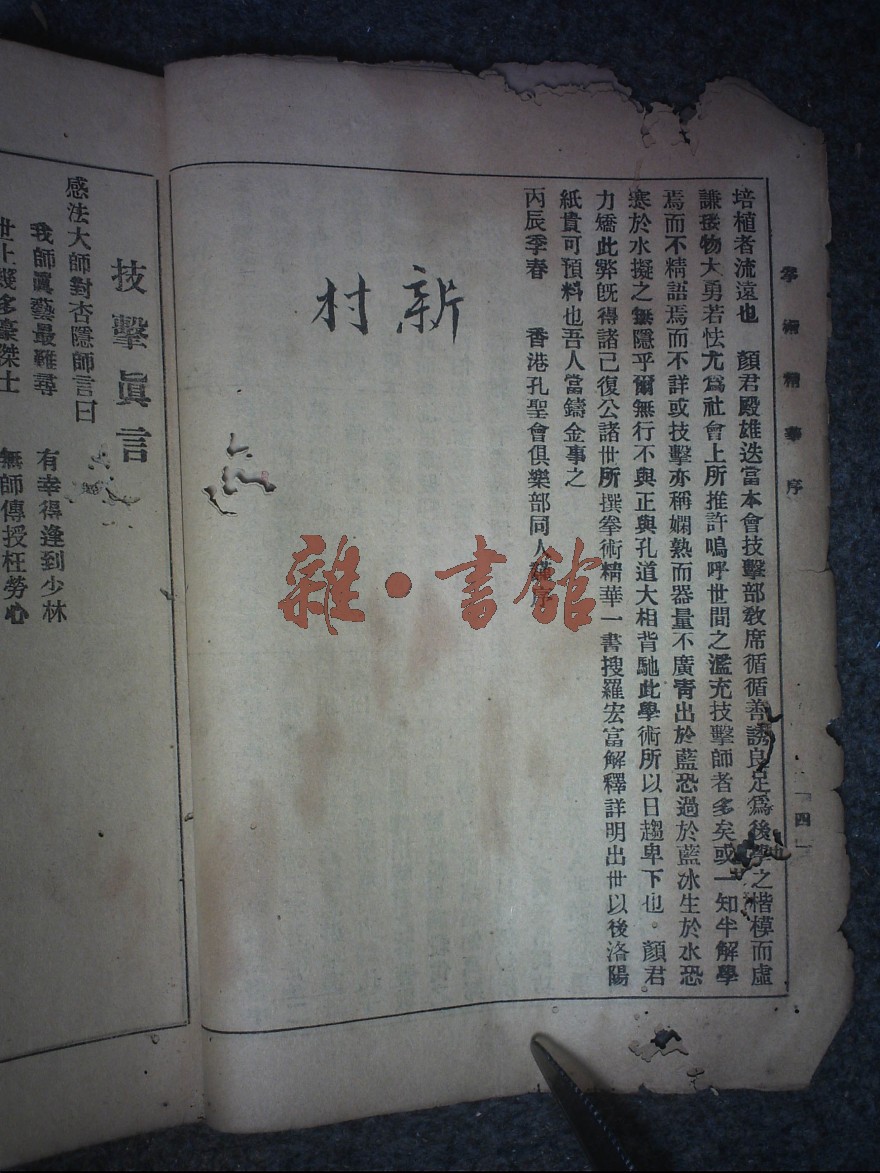 培植者流遠也　顏君殿雄迭當本會技擊部敎席循循善誘良足爲後學之楷模而虛
謙接物大勇若怯尤爲社會上所推許嗚呼世間之濫充技擊師者多矣或一知半解學
焉而不精語焉而不詳或技擊亦稱嫻熟而器量不廣靑出於藍恐過於藍冰生於水恐
寒於水擬之無隱乎爾無行不與正與孔道大相背馳此學術所以日趨卑下也。顏君
力矯此弊旣得諸己復公諸世所撰拳術精華一書搜羅宏富解釋詳明出世以後洛陽
紙貴可預料也吾人當鑄金事之
丙辰季春　香港孔聖會俱樂部同人謹序
拳術精華序
四
新村
雜·書館
技擊眞言
感法大師對杏隱師言曰
我師眞藝最難尋　有幸得逢到少林
世上幾多豪傑士　無師傳授枉勞心